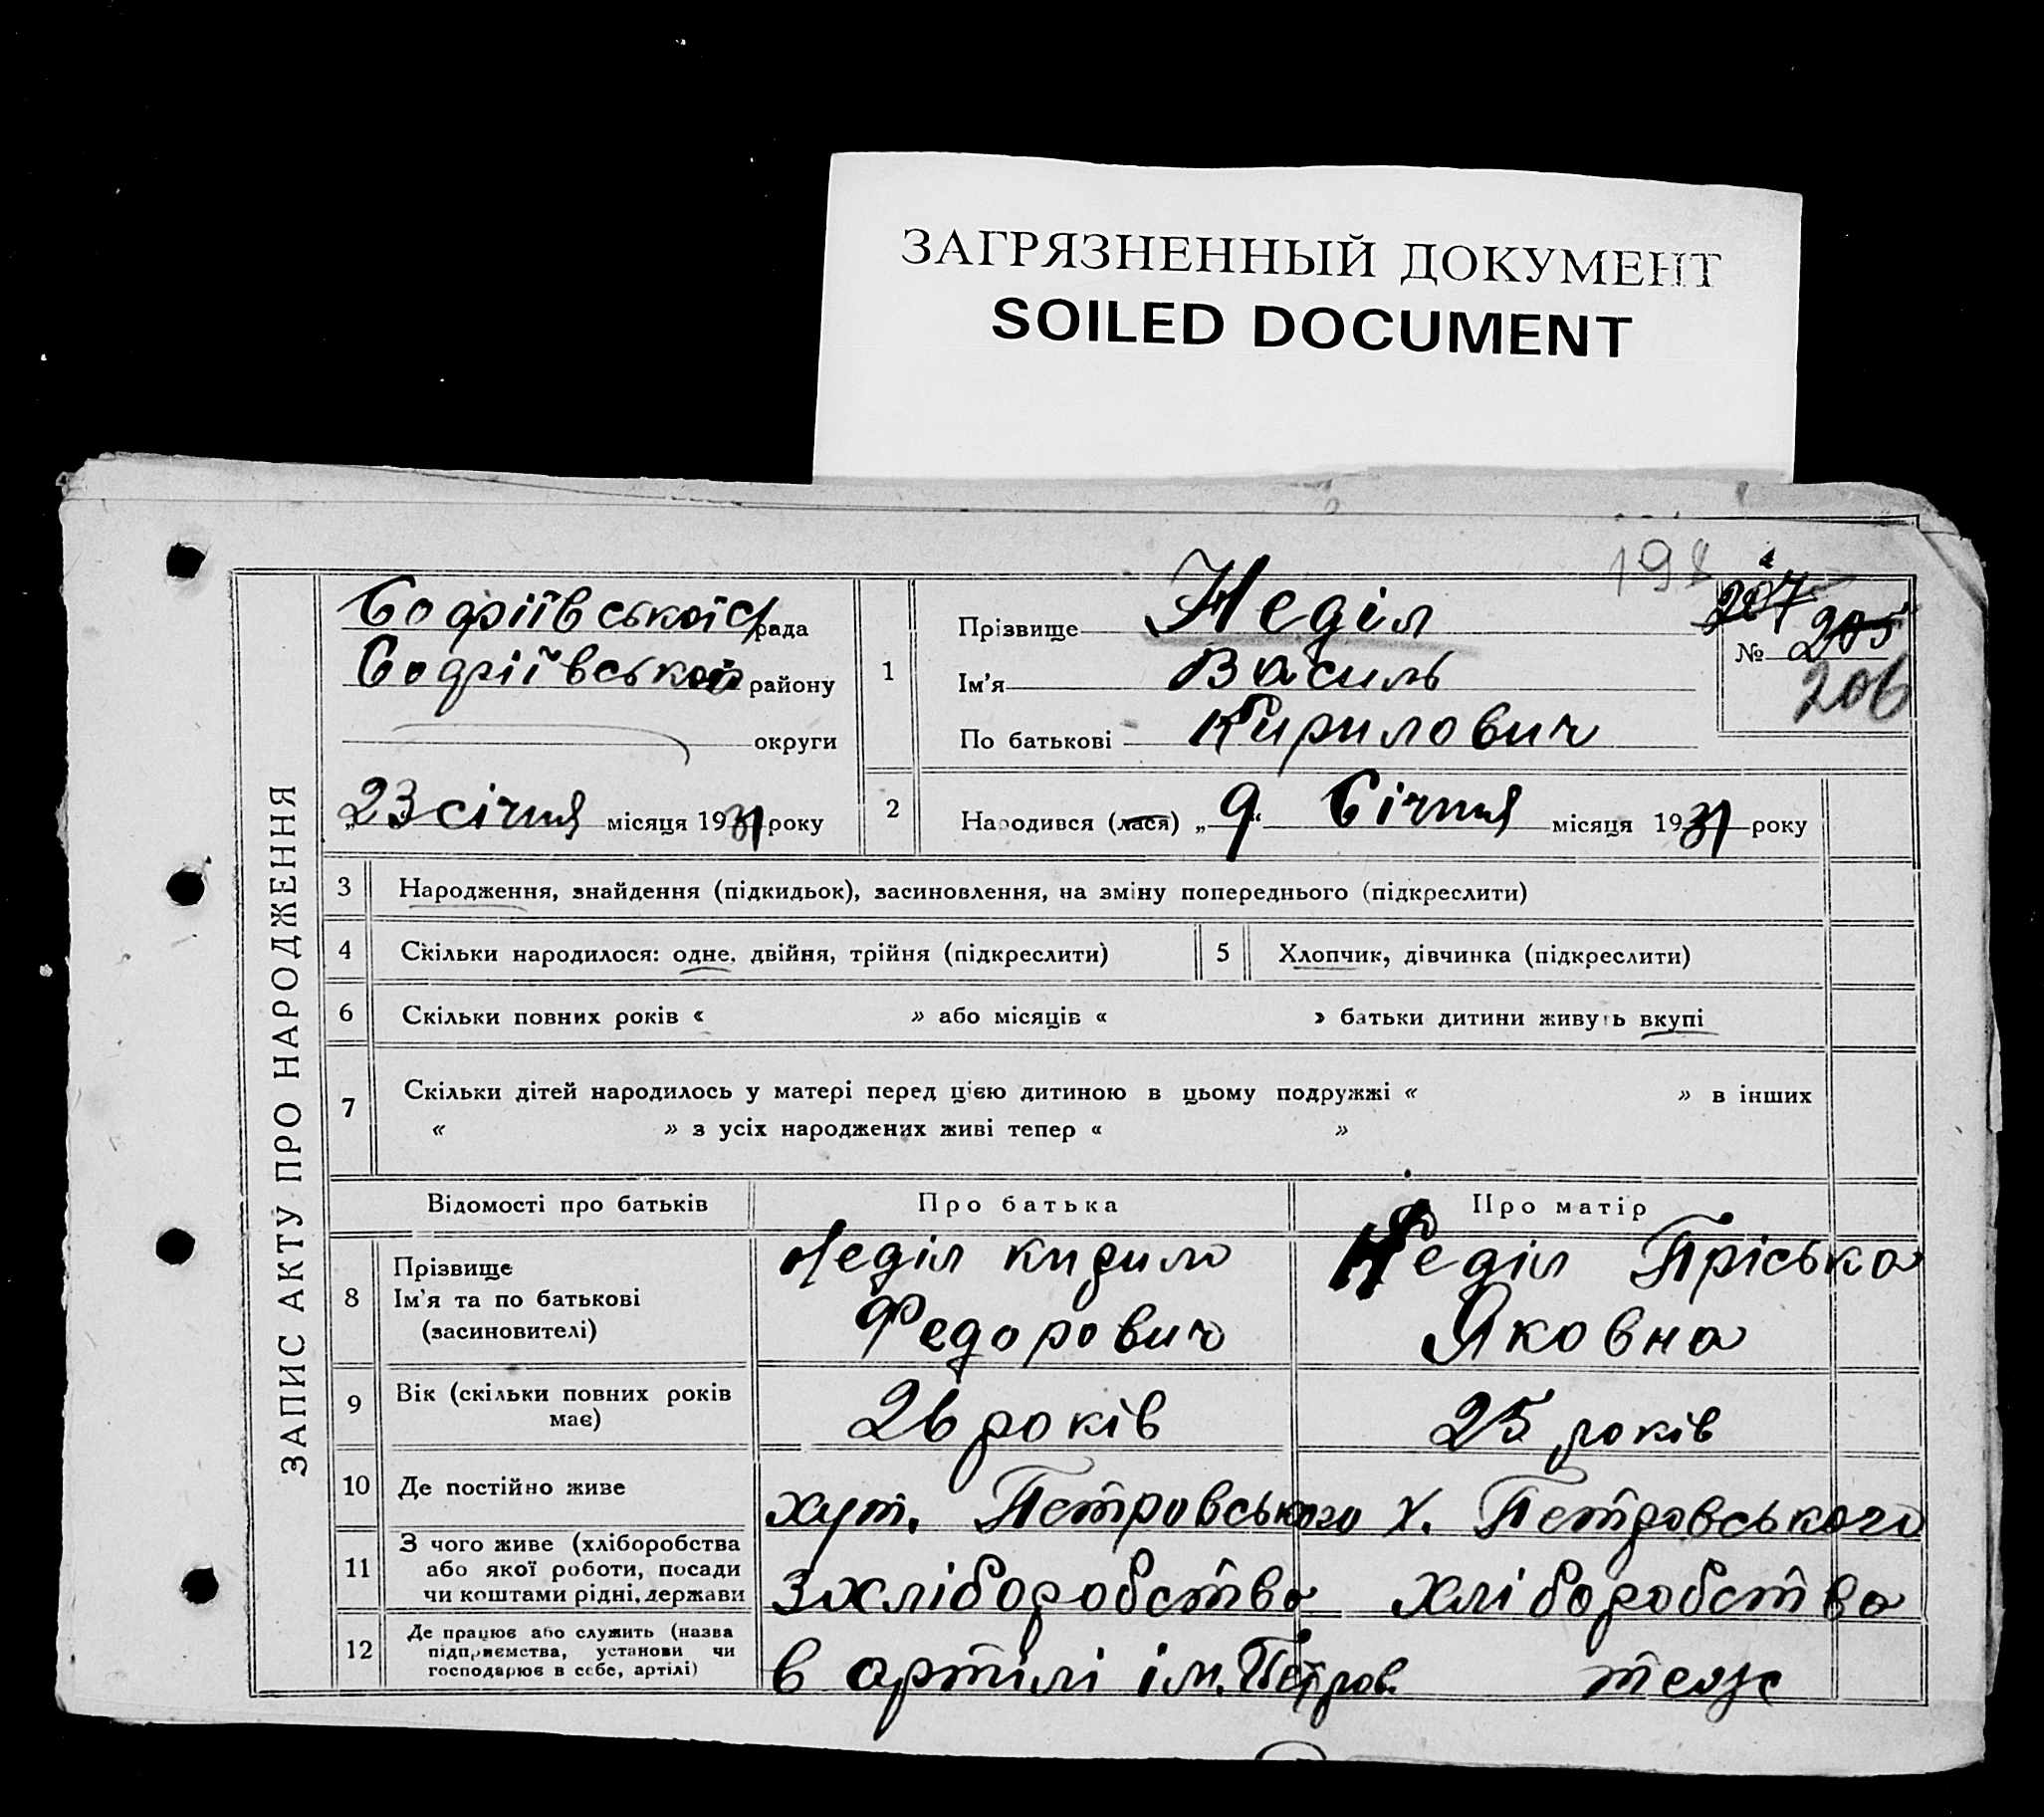 ЗАГРЯЗНЕННЫЙ ДОКУМЕНТ
SOILED DOCUMENT
198
207
№ 205
206
ЗАПИС АКТУ ПРО НАРОДЖЕННЯ
Софіївської с/рада
Софіївського району
округи
„23 січня місяця 1931 року
1 Прізвище Неділ
Ім'я Василь
По батькові Кирилович
2 Народився (лася) „9“ Січня місяця 1931 року
3 Народження, знайдення (підкидьок), засиновлення, на зміну попереднього (підкреслити)
4 Скільки народилося: одне, двійня, трійня (підкреслити) 5 Хлопчик, дівчинка (підкреслити)
6 Скільки повних років « » або місяців « » батьки дитини живуть вкупі
7 Скільки дітей народилось у матері перед цією дитиною в цьому подружжі « » в інших
« » з усіх народжених живі тепер « »
Відомості про батьків Про батька Про матір
8 Прізвище
Ім'я та по батькові
(засиновителі)
Неділ Кирило
Федорович
Неділ Пріська
Яковна
9 Вік (скільки повних років
має)
26 років 25 років
10 Де постійно живе хут. Петровського х. Петровського
11 З чого живе (хліборобства
або якої роботи, посади
чи коштами рідні, держави
з хліборобства хліборобства
12 Де працює або служить (назва
підприємства, установи чи
господарює в себе, артілі)
в артілі ім. Петров. теж